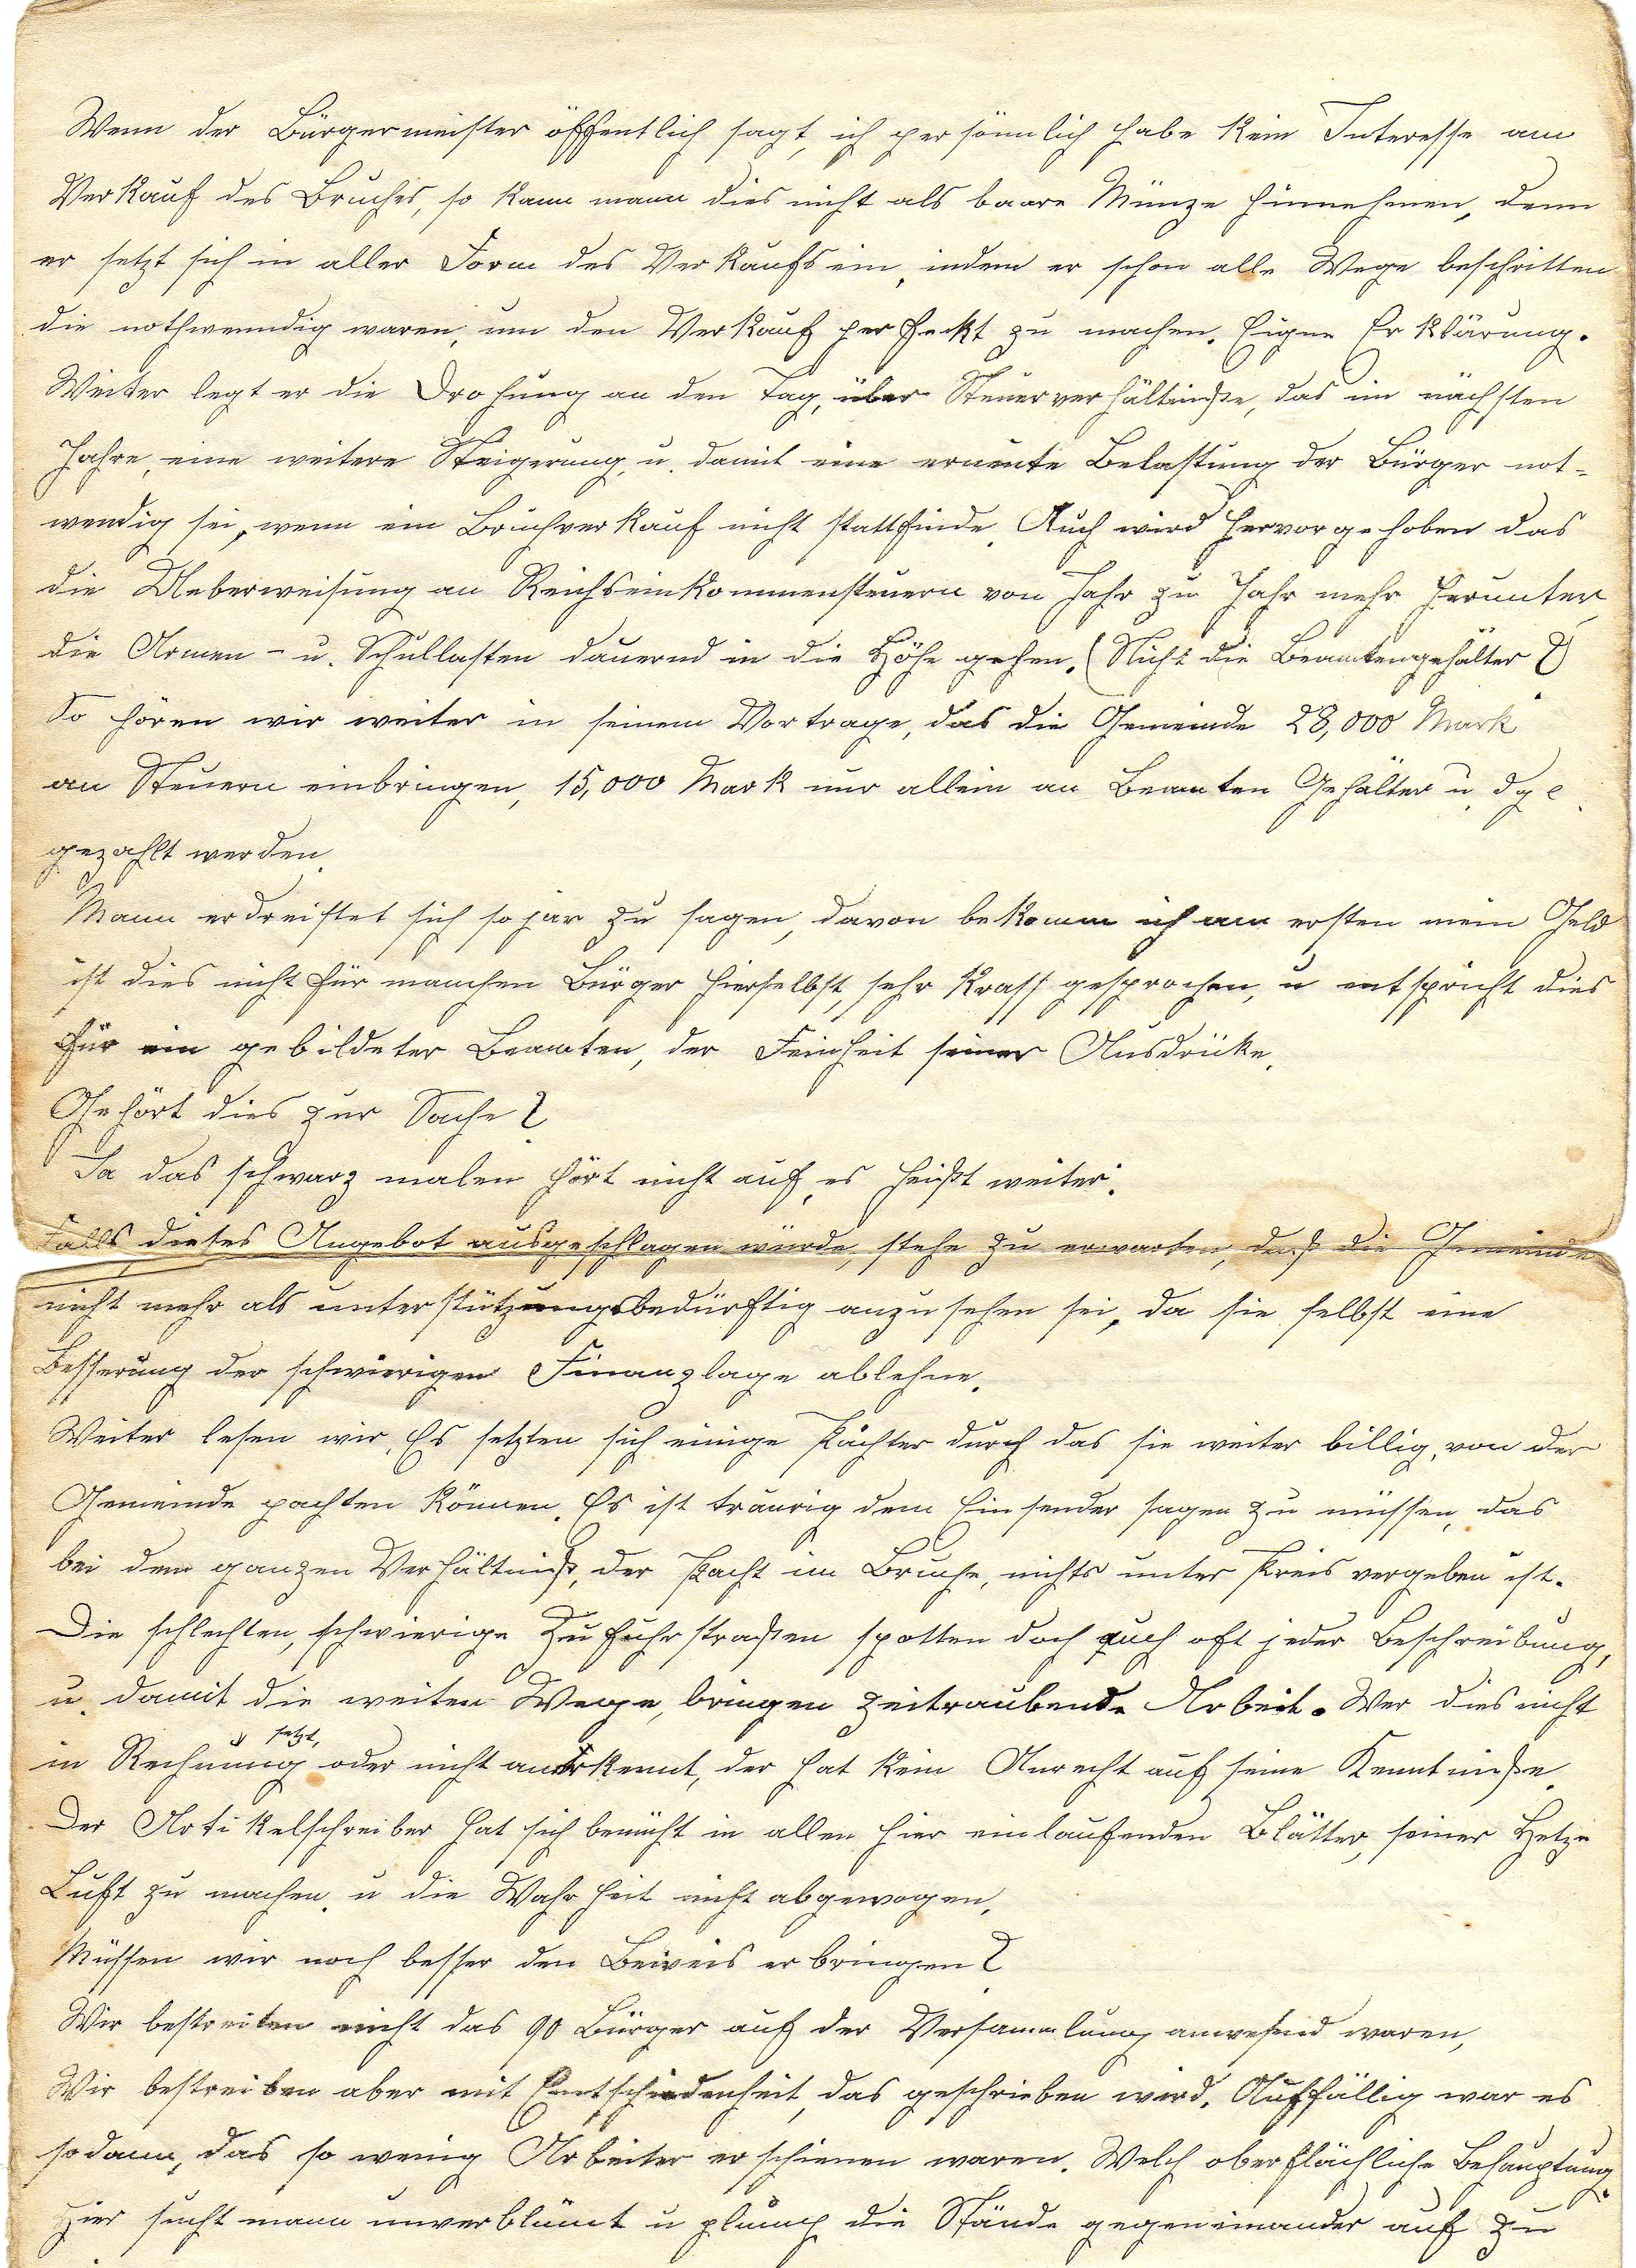 Wenn der Bürgermeister öffentlich sagt, ich persönlich habe kein Interesse am
Verkauf des Bruches, so kann mann dies nicht als baare Münze hinnehmen, denn
er setzt sich in aller Form des Verkaufs ein, indem er schon alle Wege beschritten
die nothwenndig waren, um den Verkauf perfeckt zu machen. Eigne Erklärung.
Weiter legt er die Drohung an den Tag, über Steuerverhältniße, das im nächsten
Jahre, eine weitere Steigerung, u. damit eine erneute Belastung der Bürger not-
wendig sei, wenn ein Bruchverkauf nicht stattfinde. Auch wird hervorgehoben das
die Ueberweisung an Reichseinkommensteuern von Jahr zu Jahr mehr herunter,
die Armen- u. Schullasten dauernd in die Höhe gehen. (Nicht die Beamtengehälter?)
So hören wir weiter in seinem Vortrage, das die Gemeinde 28,000 Mark
an Steuern einbringen, 15,000 Mark nur allein an Beamten Gehälter u. dgl.
gezahlt werden.
Mann erdreistet sich sojar zu sagen, davon bekomm ich am ersten mein Geld
ist dies nicht für manchen Bürger hierselbst, sehr krass gesprochen, u entspricht dies
für ein gebildeter Beamten, der Feinheit seiner Ausdrücke.
Gehört dies zur Sache?
Ja das schwarz malen hört nicht auf, es heißt weiter.
Falls dieses Angebot ausgeschlagen würde, stehe zu erwarten, daß die Gemeinde
nicht mehr als unterstützungsbedürftig anzusehen sei, da sie selbst eine
Besserung der schwierigen Finanzlage ablehne.
Weiter lesen wir, Es setzten sich einige Pächter durch das sie weiter billig, von der
Gemeinde pachten können. Es ist traurig dem Einsender sagen zu müssen, das
bei dem ganzen Verhältniß, der Pacht im Bruche, nichts unter Preis vergeben ist.
Die schlechten, schwierige Zufuhrstraßen spotten doch auch oft jeder Beschreibung,
u. damit die weiten Wege, bringen zeitraubende Arbeit. Wer dies nicht
in Rechnung setzt, oder nicht anerkennt, der hat kein Anrecht auf seine Kenntniße.
Der Artikelschreiber hat sich bemüht in allen hier einlaufenden Blätter, seiner Hetze
Luft zu machen, u die Wahrheit nicht abgewogen.
Müssen wir noch besser den Beweis erbringen?
Wir bestreiten nicht das 90 Bürger auf der Versammlung anwesend waren,
Wir bestreiten aber mit Entschiedenheit, das geschrieben wird, Auffällig war es
sodann, das so wenig Arbeiter erschienen waren. Welch oberflächliche Behauptung.
Hier sucht mann unverblümt u plump die Stände gegeneinander auf zu